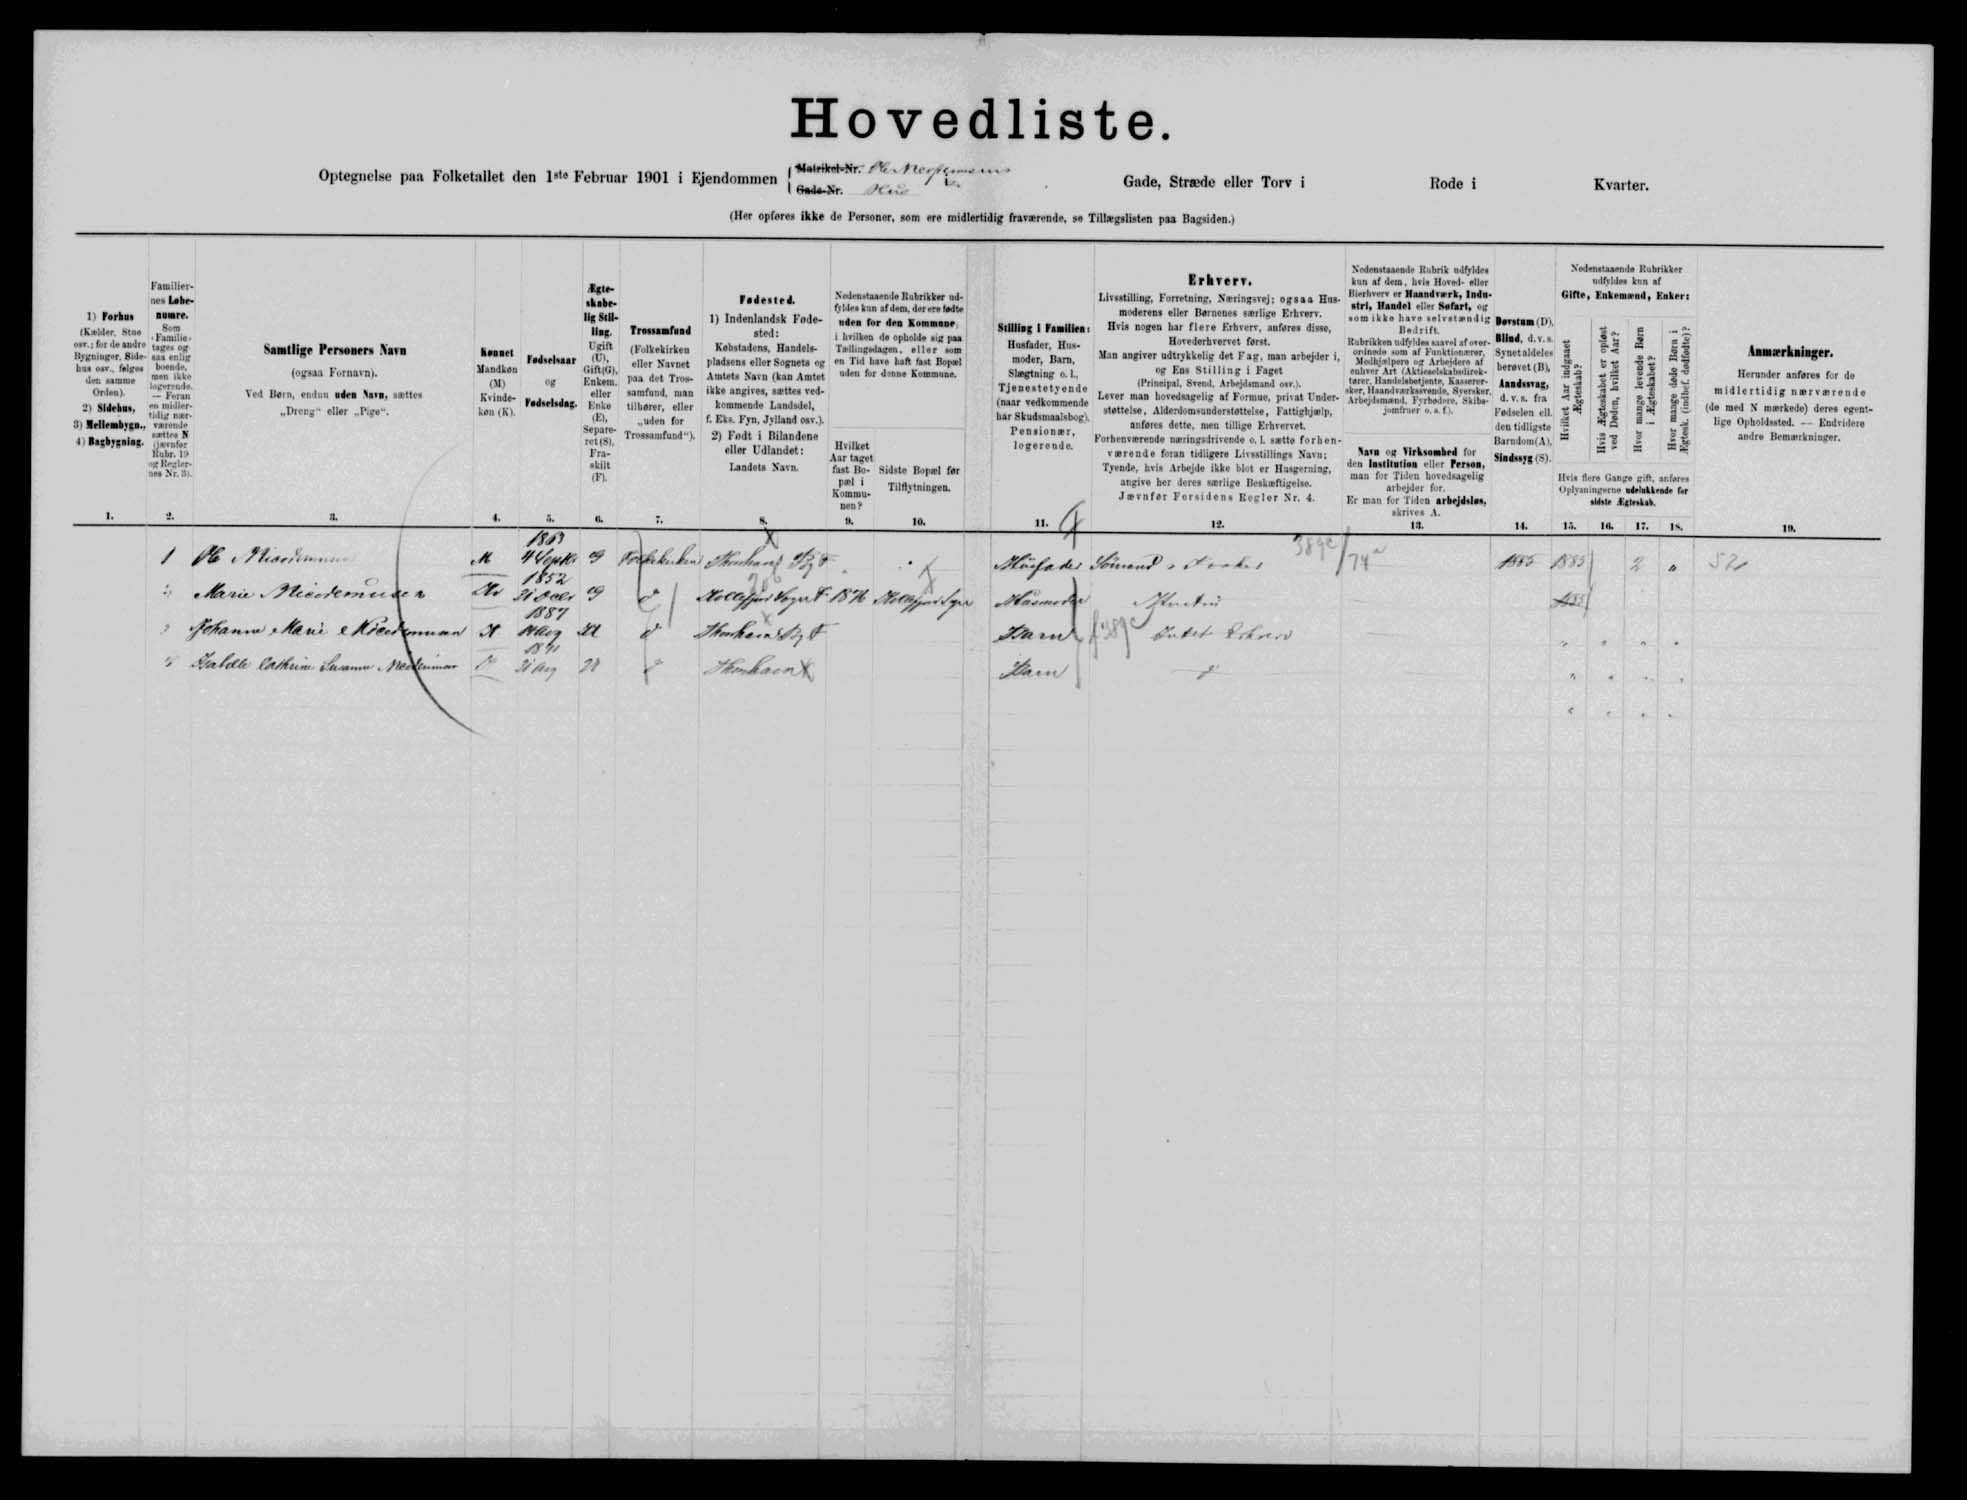 Hovedliste.
Optegnelse paa Folketallet den 1ste Februar 1901 i Ejendommen Matrikel-Nr. Gade-Nr. Hus Gade, Stræde eller Torv i Rode i Kvarter.
(Her opføres ikke de Personer, som ere midlertidig fraværende, se Tillægslisten paa Bagsiden.)
1) Forhus
(Kælder, Stue
osv.; for de andre
Bygninger, Side-
hus osv., følges
den samme
Orden).
2) Sidehus,
3) Mellembygn.,
4) Bagbygning.
Familier-
nes Løbe-
numre.
Som
›Familie›
tages og-
saa enlig
boende,
men ikke
logerende.
— Foran
en midler-
tidig nær-
værende
sættes N
(jævnfør
Rubr. 19
og Regler-
nes Nr. 3).
Samtlige Personers Navn
(ogsaa Fornavn).
Ved Børn, endnu uden Navn, sættes
„Dreng“ eller „Pige“.
Kønnet
Mandkøn
(M)
Kvinde-
køn (K).
Fødselsaar
og
Fødselsdag.
Ægte-
skabe-
lig Stil-
ling.
Ugift
(U),
Gift(G),
Enkem.
eller
Enke
(E),
Separe-
ret (S),
Fra-
skilt
(F).
Trossamfund
(Folkekirken
eller Navnet
paa det Tros-
samfund, man
tilhører, eller
„uden for
Trossamfund“).
Fødested.
1) Indenlandsk Føde-
sted:
Købstadens, Handels-
pladsens eller Sognets og
Amtets Navn (kan Amtet
ikke angives, sættes ved-
kommende Landsdel,
f. Eks. Fyn, Jylland osv.).
2) Født i Bilandene
eller Udlandet:
Landets Navn.
Nedenstaaende Rubrikker ud-
fyldes kun af dem, der ere fødte
uden for den Kommune,
i hvilken de opholde sig paa
Tællingsdagen, eller som
en Tid have haft fast Bopæl
uden for denne Kommune.
Hvilket
Aar taget
fast Bo-
pæl i
Kommu-
nen?
Sidste Bopæl før
Tilflytningen.
Stilling i Familien:
Husfader, Hus-
moder, Barn,
Slægtning o. l.,
Tjenestetyende
(naar vedkommende
har Skudsmaalsbog),
Pensionær,
logerende.
Erhverv.
Livsstilling, Forretning, Næringsvej; ogsaa Hus-
moderens eller Børnenes særlige Erhverv.
Hvis nogen har flere Erhverv, anføres disse,
Hovederhvervet først.
Man angiver udtrykkelig det Fag, man arbejder i,
og Ens Stilling i Faget
(Principal, Svend, Arbejdsmand osv.).
Lever man hovedsagelig af Formue, privat Under-
støttelse, Alderdomsunderstøttelse, Fattighjælp,
anføres dette, men tillige Erhvervet.
Forhenværende næringsdrivende o. l. sætte forhen-
værende foran tidligere Livsstillings Navn;
Tyende, hvis Arbejde ikke blot er Husgerning,
angive her deres særlige Beskæftigelse.
Jævnfør Forsidens Regler Nr. 4.
Nedenstaaende Rubrik udfyldes
kun af dem, hvis Hoved- eller
Bierhverv er Haandværk, Indu-
stri, Handel eller Søfart, og
som ikke have selvstændig
Bedrift.
Rubrikken udfyldes saavel af over-
ordnede som af Funktionærer,
Medhjælpere og Arbejdere af
enhver Art (Aktieselskabsdirek-
tører, Handelsbetjente, Kasserer-
sker, Haandværkssvende, Syersker,
Arbejdsmænd, Fyrbødere, Skibs-
jomfruer o. s. f.).
Navn og Virksomhed for
den Institution eller Person,
man for Tiden hovedsagelig
arbejder for.
Er man for Tiden arbejdsløs,
skrives A.
Døvstum (D),
Blind, d. v. s.
Synet aldeles
berøvet (B),
Aandssvag,
d. v. s. fra
Fødselen ell.
den tidligste
Barndom (A),
Sindssyg (S).
Nedenstaaende Rubrikker
udfyldes kun af
Gifte, Enkemænd, Enker:
Hvilket Aar indgaaet
Ægteskab?
Hvis Ægteskabet er opløst
ved Døden, hvilket Aar?
Hvor mange levende Børn
i Ægteskabet?
Hvor mange døde Børn i
Ægtesk. (indbef. dødfødte)?
Hvis flere Gange gift, anføres
Oplysningerne udelukkende for
sidste Ægteskab.
Anmærkninger.
Herunder anføres for de
midlertidig nærværende
(de med N mærkede) deres egent-
lige Opholdssted. — Endvidere
andre Bemærkninger.
1. 2. 3. 4. 5. 6. 7. 8. 9. 10. 11. 12. 13. 14. 15. 16. 17. 18. 19.
1863
1 Ole M 4 Septbr G Folkekirken Husfader Sømand 389c 74a 1885 1885 2 " 52
1852
Marie Nicodemusen Kv 31 Octbr G d 1876 Husmoder Hustru 1885
1887
Johanne Marie Nicodemusen K Aug d Barn 389c Intet Erhverv
31 Aug d Barn d